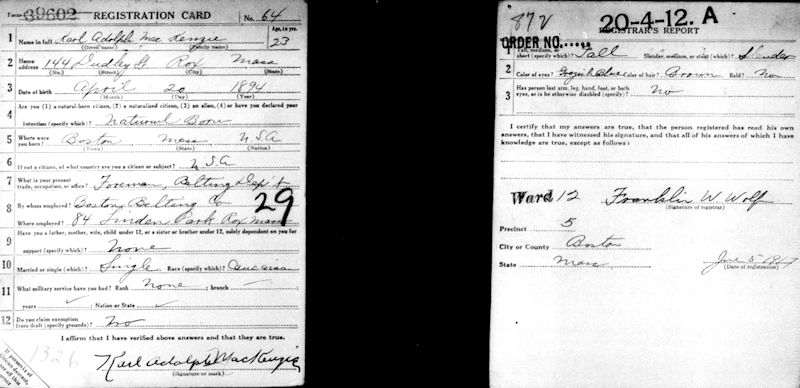 Form 39602 REGISTRATION CARD No. 64
1 Name in full Karl Adolph Mac Kenzie Age, in yrs. 23
(Given name) (Family name)
2 Home address 144 Dudley St Rox Mass
(No.) (Street) (City) (State)
3 Date of birth April 20 1894
(Month) (Day) (Year)
4 Are you (1) a natural-born citizen, (2) a naturalized citizen, (3) an alien, (4) or have you declared your
intention (specify which)? Natural Born
5 Where were you born? Boston Mass U.S.A
(Town) (State) (Nation)
6 If not a citizen, of what country are you a citizen or subject? U.S.A
7 What is your present trade, occupation, or office? Foreman, Belting Dep't
8 By whom employed? Boston Belting Co 29
Where employed? 84 Linden Park Rox Mass
9 Have you a father, mother, wife, child under 12, or a sister or brother under 12, solely dependent on you for
support (specify which)? None
10 Married or single (which)? Single Race (specify which)? Caucasian
11 What military service have you had? Rank None ; branch
years ; Nation or State
12 Do you claim exemption from draft (specify grounds)? No
I affirm that I have verified above answers and that they are true.
1326
Karl Adolph MacKenzie
(Signature or mark)
872 20-4-12. A
REGISTRAR'S REPORT
ORDER NO.
1 Tall, medium, or short (specify which)? Tall Slender, medium, or stout (which)? Slender
2 Color of eyes? Grayish Blue Color of hair? Brown Bald? No
3 Has person lost arm, leg, hand, foot, or both
eyes, or is he otherwise disabled (specify)? No
I certify that my answers are true, that the person registered has read his own
answers, that I have witnessed his signature, and that all of his answers of which I have
knowledge are true, except as follows:
Ward 12 Franklin W. Wolf
(Signature of registrar)
Precinct 5
City or County Boston
State Mass June 5 1917
(Date of registration)